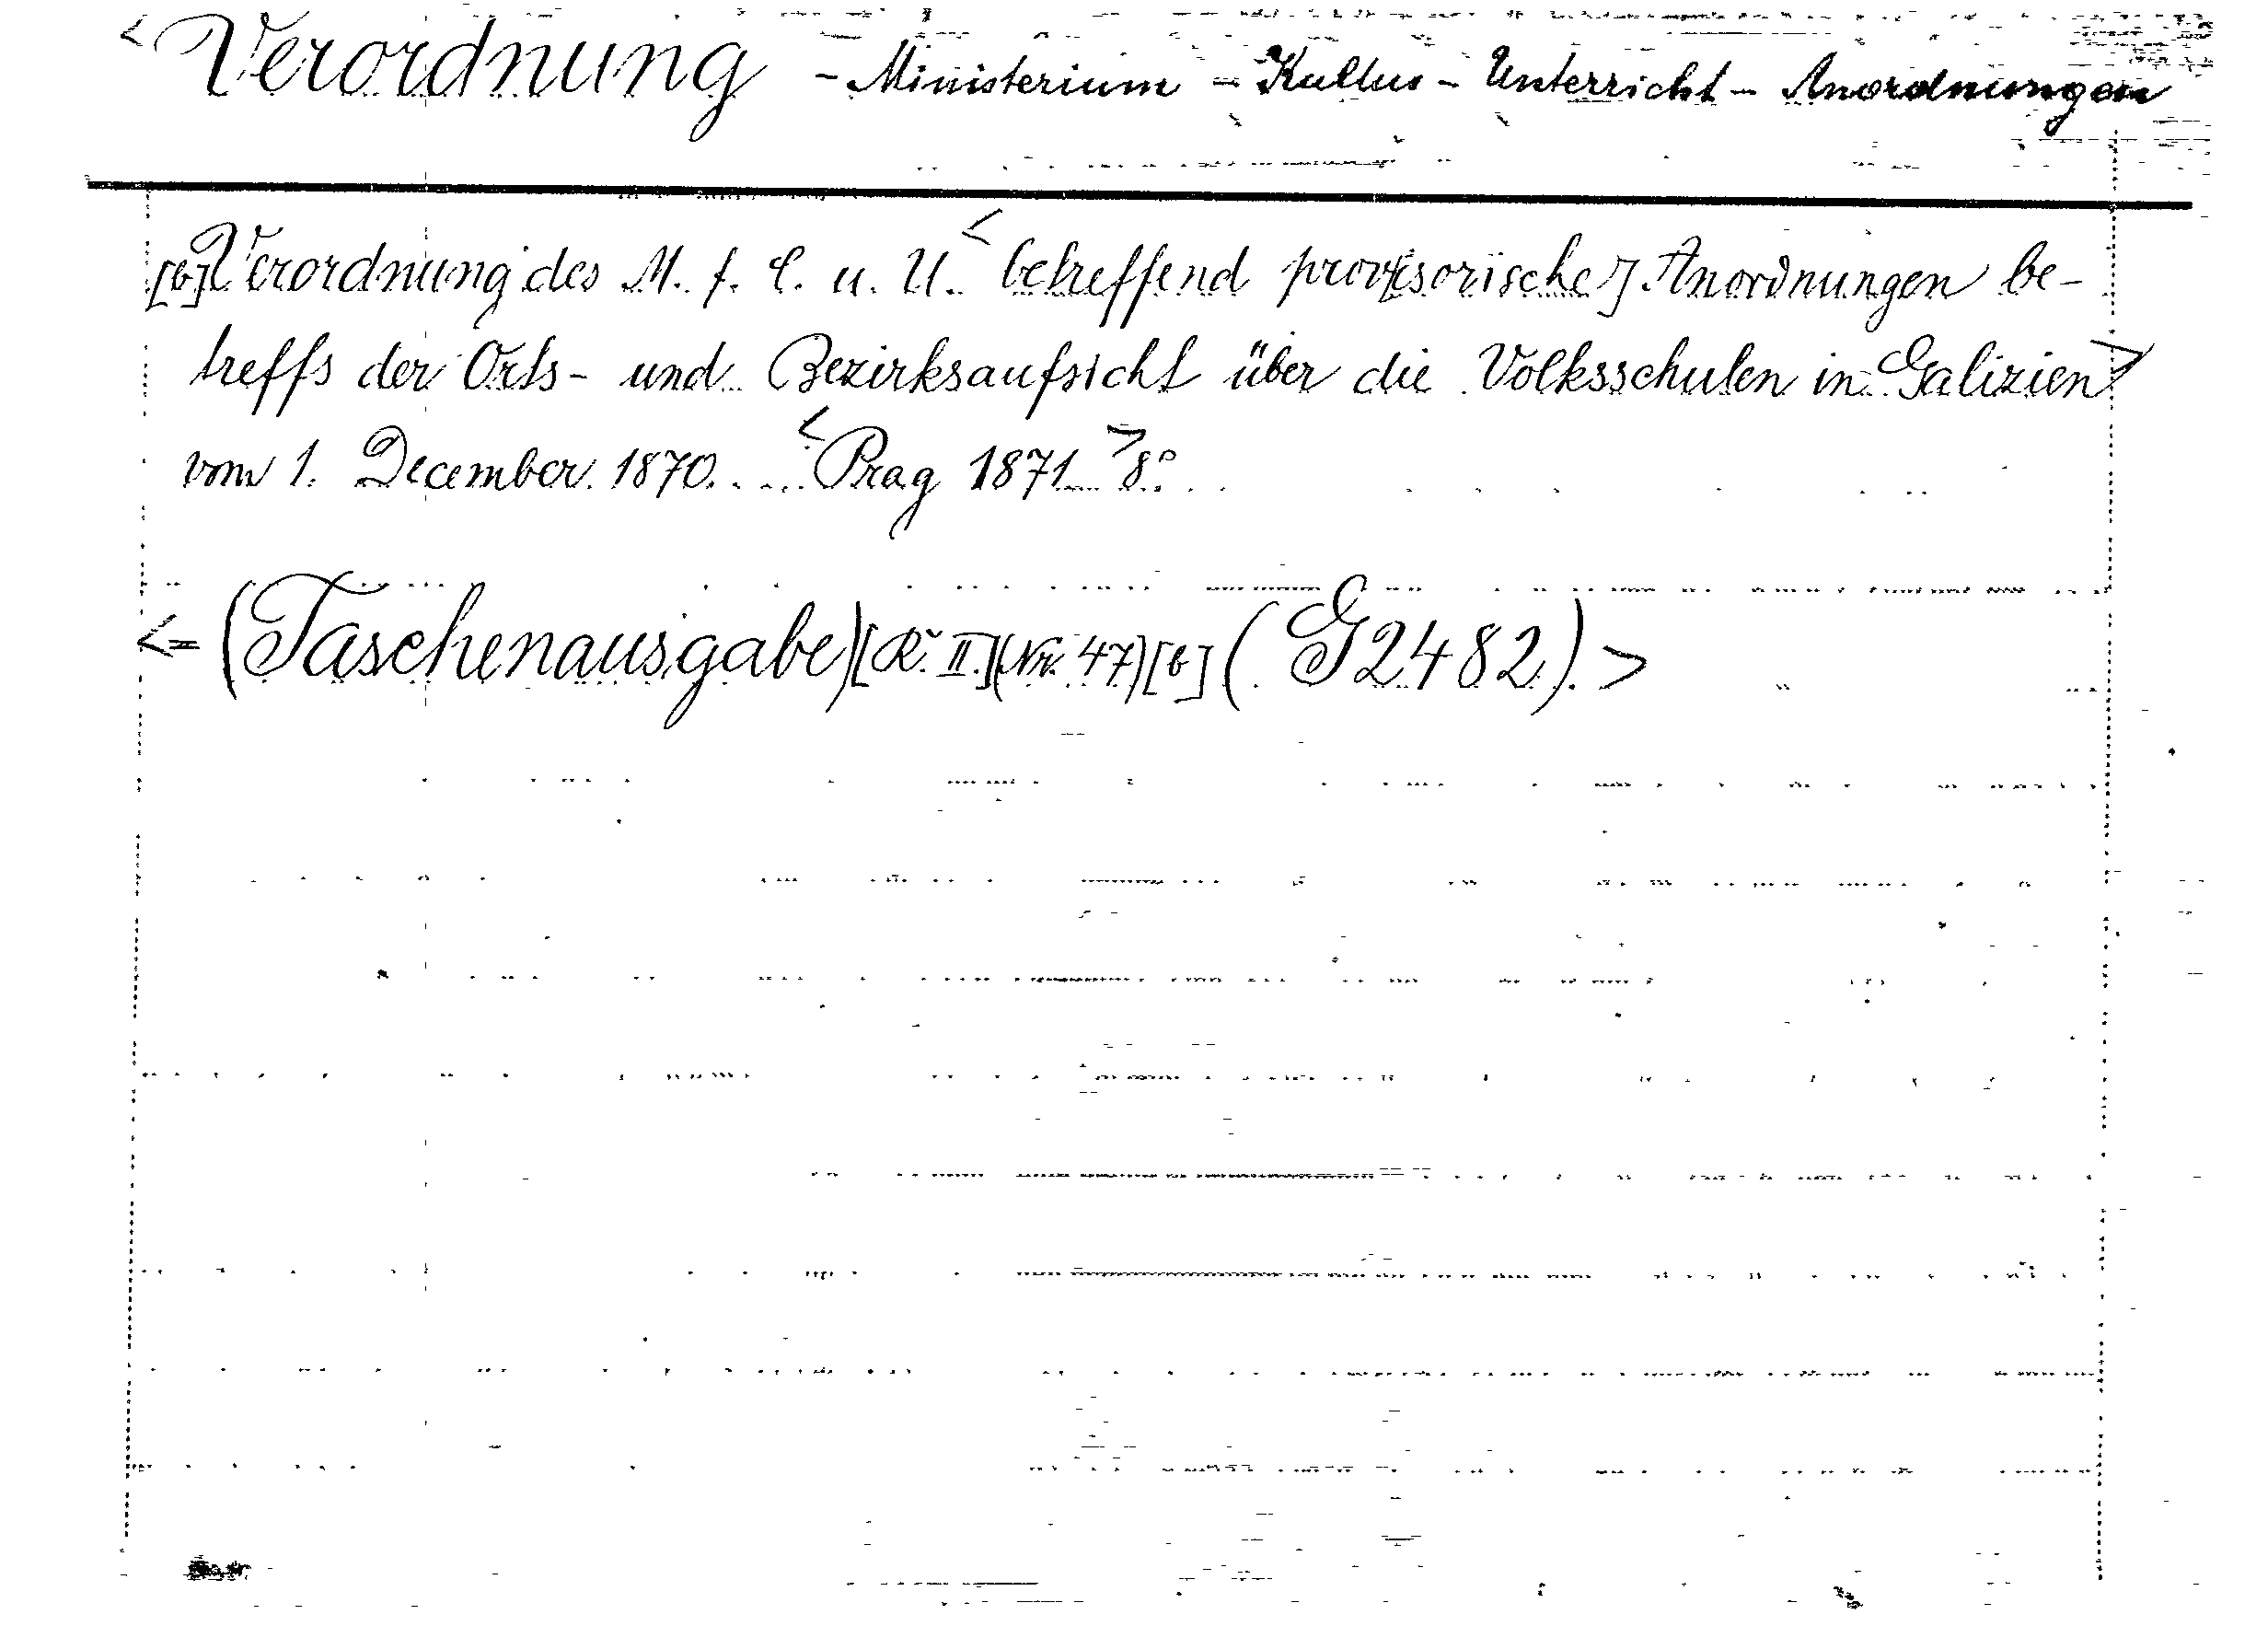 < Verordnung - Ministerium - Kultus - Unterricht - Anordnungen
[b] Verordnung des M. f. C. u. U. < betreffend provisorische] Anordnungen be-
treffs der Orts- und Bezirksaufsicht über die Volksschulen in Galizien >
vom 1. December 1870. ... < Prag 1871 > 8°.
<= (Taschenausgabe) [R. II.] (Nr. 47) [b] (G 2482). >